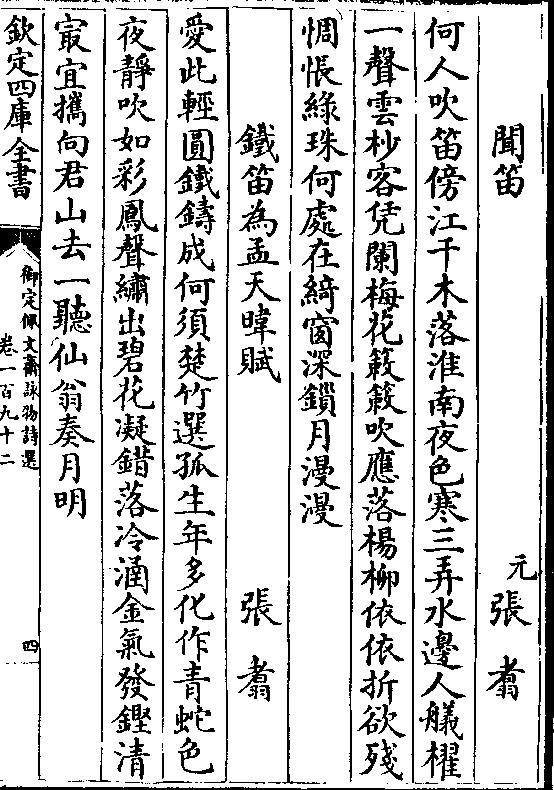 聞笛　元張翥
何人吹笛傍江干木落淮南夜色寒三弄水邊人艤櫂
一聲雲杪客凭闌梅花簌簌吹應落楊柳依依折欲殘
惆悵綠珠何處在綺窗深鎖月漫漫
鐵笛為孟天暐賦　張翥
愛此輕圓鐵鑄成何須楚竹選孤生年多化作青蛇色
夜靜吹如彩鳳聲繡出碧花凝錯落冷涵金氣發鏗清
㝡宜攜向君山去一聽仙翁奏月明
欽定四庫全書
御定佩文齋詠物詩選
卷一百九十二
四